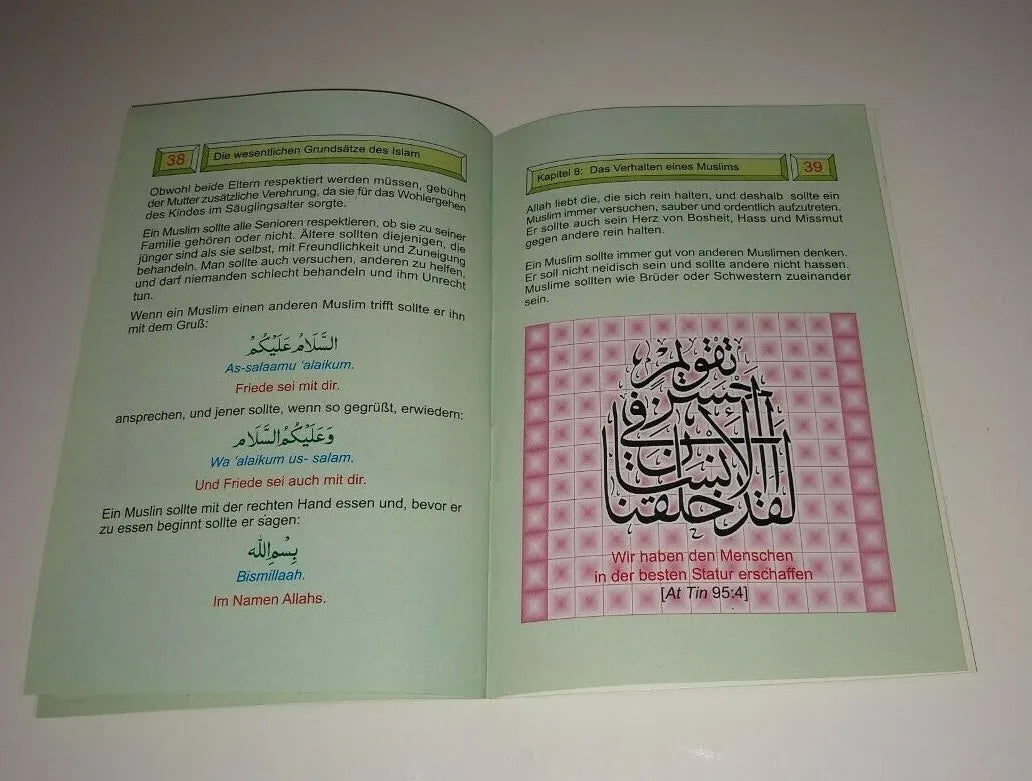 38 Die wesentlichen Grundsätze des Islam
Obwohl beide Eltern respektiert werden müssen, gebührt
der Mutter zusätzliche Verehrung, da sie für das Wohlergehen
des Kindes im Säuglingsalter sorgte.
Ein Muslim sollte alle Senioren respektieren, ob sie zu seiner
Familie gehören oder nicht. Ältere sollten diejenigen, die
jünger sind als sie selbst, mit Freundlichkeit und Zuneigung
behandeln. Man sollte auch versuchen, anderen zu helfen,
und darf niemanden schlecht behandeln und ihm Unrecht
tun.
Wenn ein Muslim einen anderen Muslim trifft sollte er ihn
mit dem Gruß:
السَّلَامُ عَلَيْكُمْ
As-salaamu 'alaikum.
Friede sei mit dir.
ansprechen, und jener sollte, wenn so gegrüßt, erwiedern:
وَعَلَيْكُمُ السَّلَام
Wa 'alaikum us- salam.
Und Friede sei auch mit dir.
Ein Muslin sollte mit der rechten Hand essen und, bevor er
zu essen beginnt sollte er sagen:
بِسْمِ اللّٰه
Bismillaah.
Im Namen Allahs.
Kapitel 8: Das Verhalten eines Muslims 39
Allah liebt die, die sich rein halten, und deshalb sollte ein
Muslim immer versuchen, sauber und ordentlich aufzutreten.
Er sollte auch sein Herz von Bosheit, Hass und Missmut
gegen andere rein halten.
Ein Muslim sollte immer gut von anderen Muslimen denken.
Er soll nicht neidisch sein und sollte andere nicht hassen.
Muslime sollten wie Brüder oder Schwestern zueinander
sein.
لقد خلقنا الإنسان في أحسن تقويم
Wir haben den Menschen
in der besten Statur erschaffen
[At Tin 95:4]